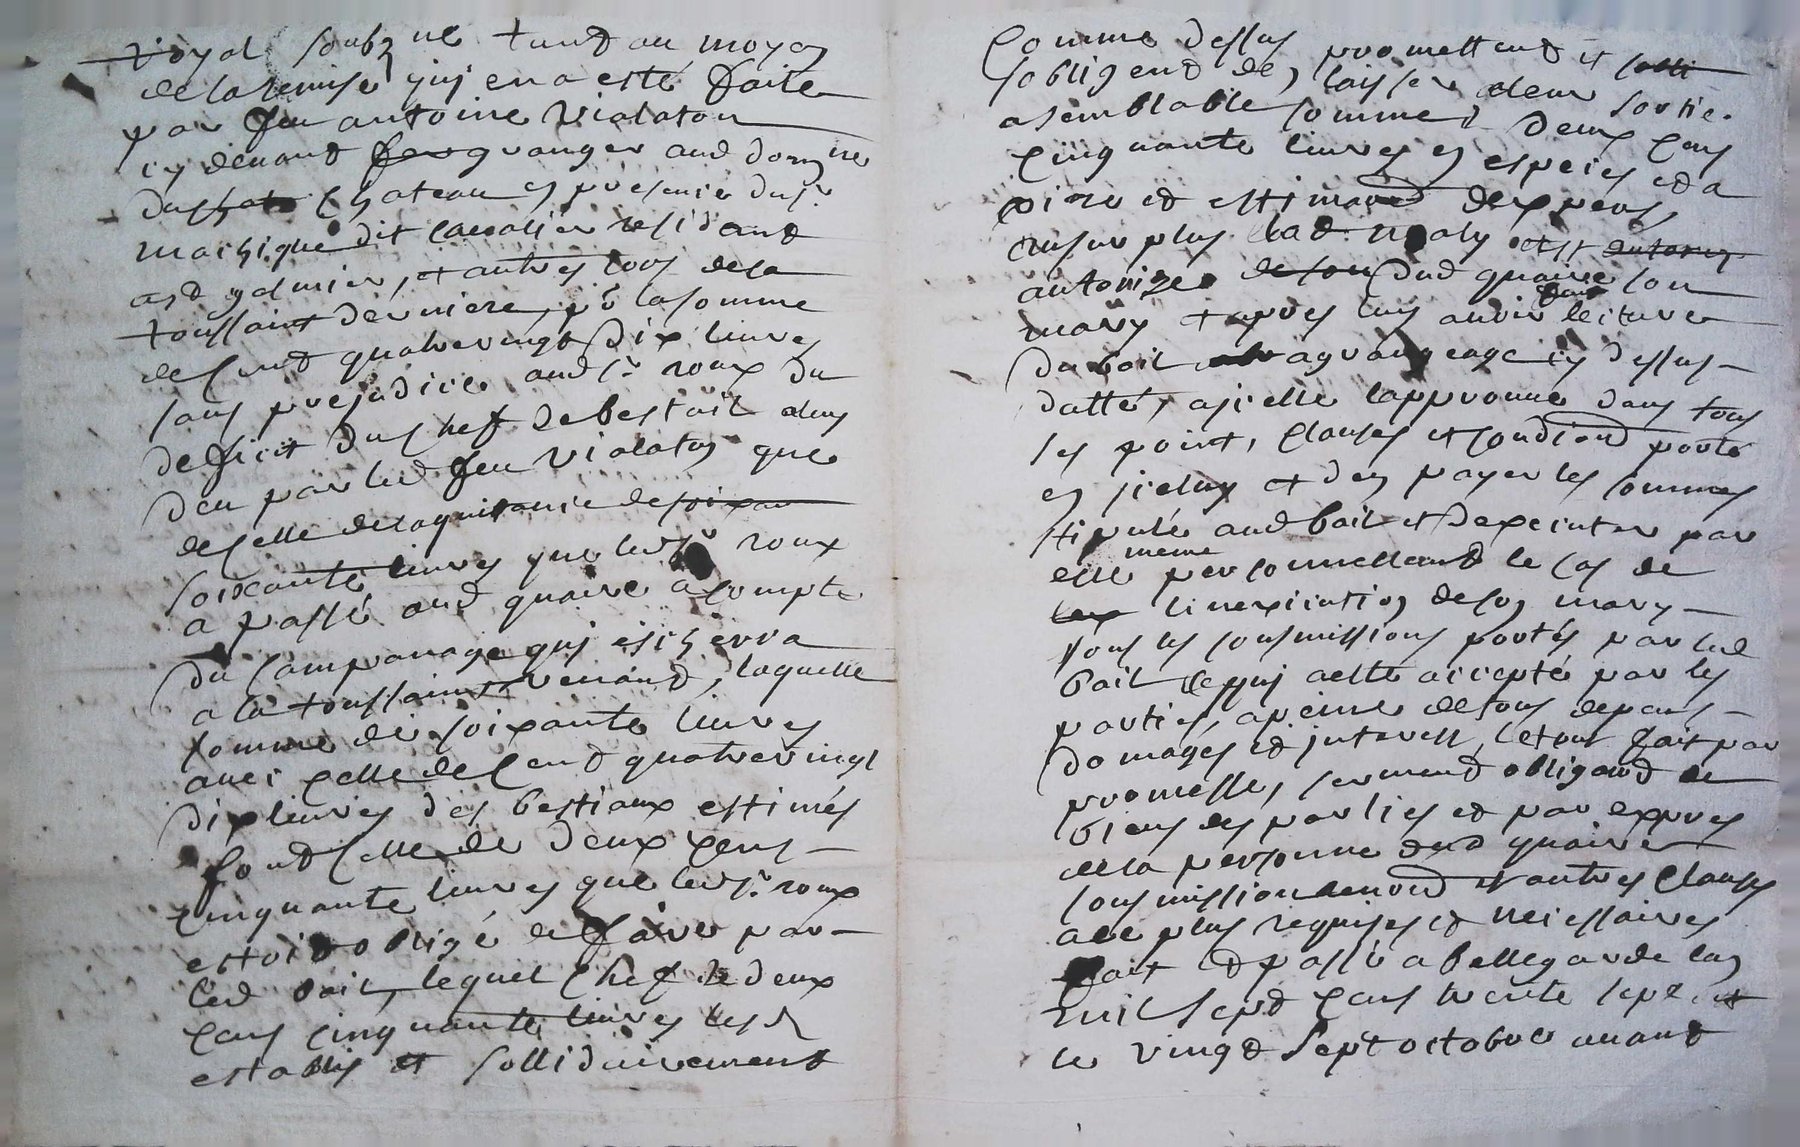 royal soubz ne tand au moyen
de la remise quj en a esté faite
par feu antoine Vialaton
cy devand fer granger aud domne
du chato Chateau en presence du sr
maisique dit cavalier residand
a st galmier, et autres lors de la
toussaint derniere, pr la somme
de cend quatre vingt dix livres
sans prejudice aud sr roux du
deficit du cheft de bestail a luy
deu par led feu Vialaton que
de celle de la quitance de soixan
soixante livres que led sr roux
a passé aud quaire a compte
du campanage quj escherra
a la toussaint venand, laquelle
somme de soixante livres
avec celle de Cend quatre vingt
dix livres des bestiaux estimés
fond celle de deux cens
cinquante livres que led sr roux
estoit obligé de faire par
led bail, lequel Chef de deux
cens cinquante livres lesd
establis et sollidairement
Comme dessus promettend et solli
sobligend den laisser a leur sortie
a semblable somme de deux cens
cinquante livres en espeies et a
prize et estimaond dexpers,
au surplus lad maly est autoriz
autorizée de son dud quaire son
mary et apres luy avoir faict leiture
du bail a grangeage cy dessus
datté, ajcelle lapprouve dans tous
ses point, clauses et condiond porté
en jceluy et den payer les sommes
stipulé aud bail et dexecuter par
elle meme personnellemend le cas de
lex linexicution de son mary
sous les sousmissions portés par led
bail ce quj a esté accepté par les
parties, a peine de tous depans
domages et jnterest, le tout fait par
promesse, sermend obligaond de
biens des parties et par exprès
de la personne dud quaire
sousmission renond et autres clauses
a ce plus requises et neiessaires
fait et passé a bellegarde lan
mil sept cens trente sept et
le vingt sept octobre avant